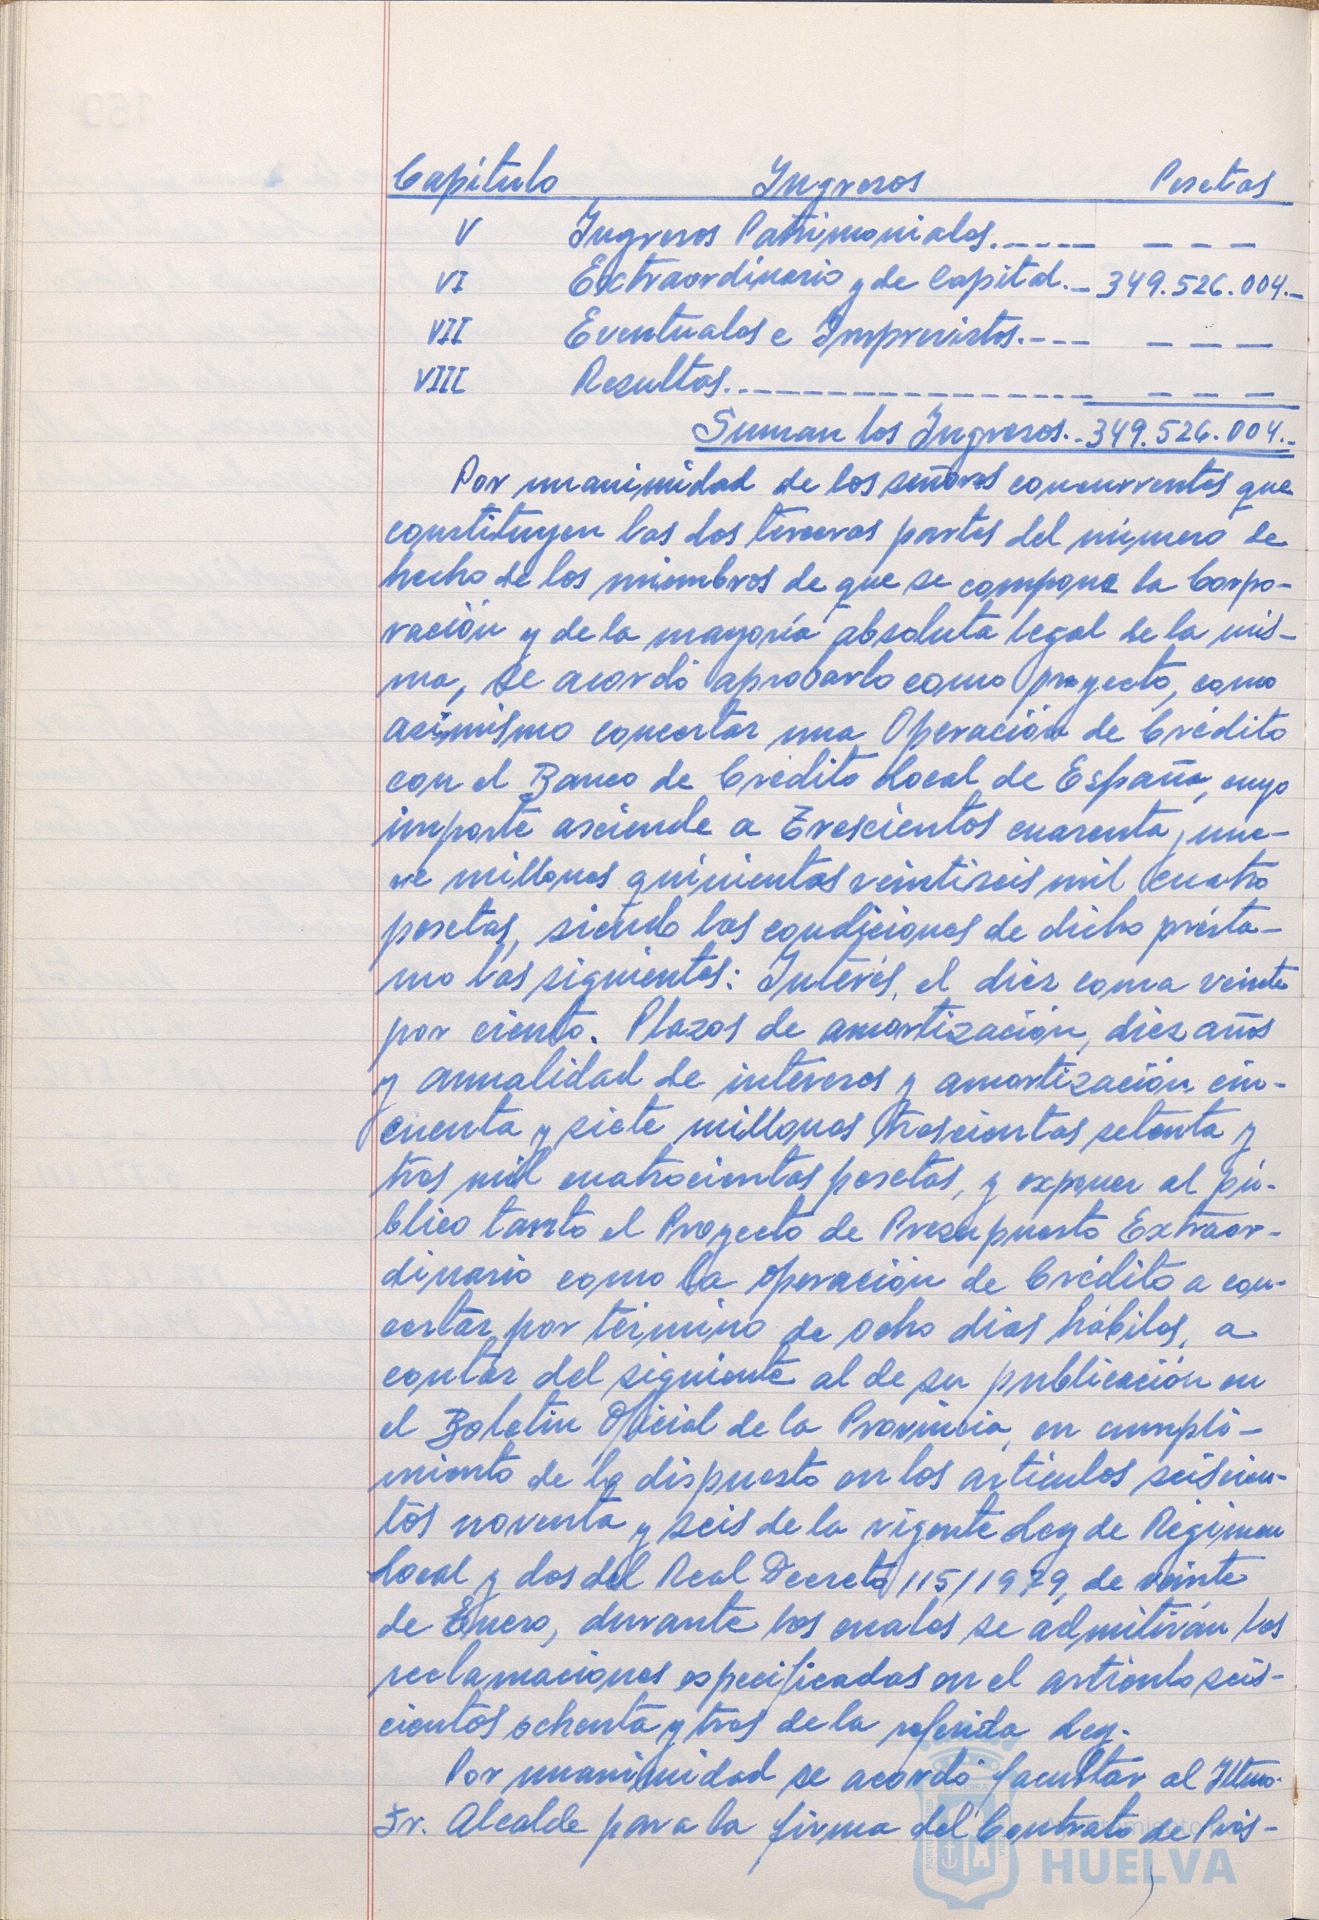 Capítulo Ingresos Pesetas
V Ingresos Patrimoniales.---- — — —
VI Extraordinario y de Capital.- 349.526.004.-
VII Eventuales e Imprevistos.--- — — —
VIII Resultas.----------------- — — —
Suman los Ingresos.- 349.526.004.-
Por unanimidad de los señores concurrentes que
constituyen las dos terceras partes del número de
hecho de los miembros de que se compone la Corpo-
ración y de la mayoría absoluta legal de la mis-
ma, se acordó aprobarlo como proyecto, como
asimismo concertar una Operación de Crédito
con el Banco de Crédito Local de España, cuyo
importe asciende a Trescientos cuarenta y nue-
ve millones quinientas veintiseis mil cuatro
pesetas, siendo las condiciones de dicho présta-
mo las siguientes: Interés, el diez coma veinte
por ciento. Plazos de amortización, diez años
y annalidad de intereses y amortización cin-
cuenta y siete millones trescientas setenta y
tres mil cuatrocientas pesetas, y exponer al pú-
blico tanto el Proyecto de Presupuesto Extraor-
dinario como la operación de Crédito a con-
certar, por término de ocho dias hábiles, a
contar del siguiente al de su publicación en
el Boletin Oficial de la Provincia, en cumpli-
miento de lo dispuesto en los articulos seiscien-
tos noventa y seis de la vigente Ley de Régimen
Local y dos del Real Decreto 115/1979, de veinte
de Enero, durante los cuales se admitirán las
reclamaciones especificadas en el articulo seis-
cientos ochenta y tres de la referida Ley.
Por unanimidad se acordó facultar al Iltmo.
Sr. Alcalde para la firma del Contrato de Prés-
HUELVA